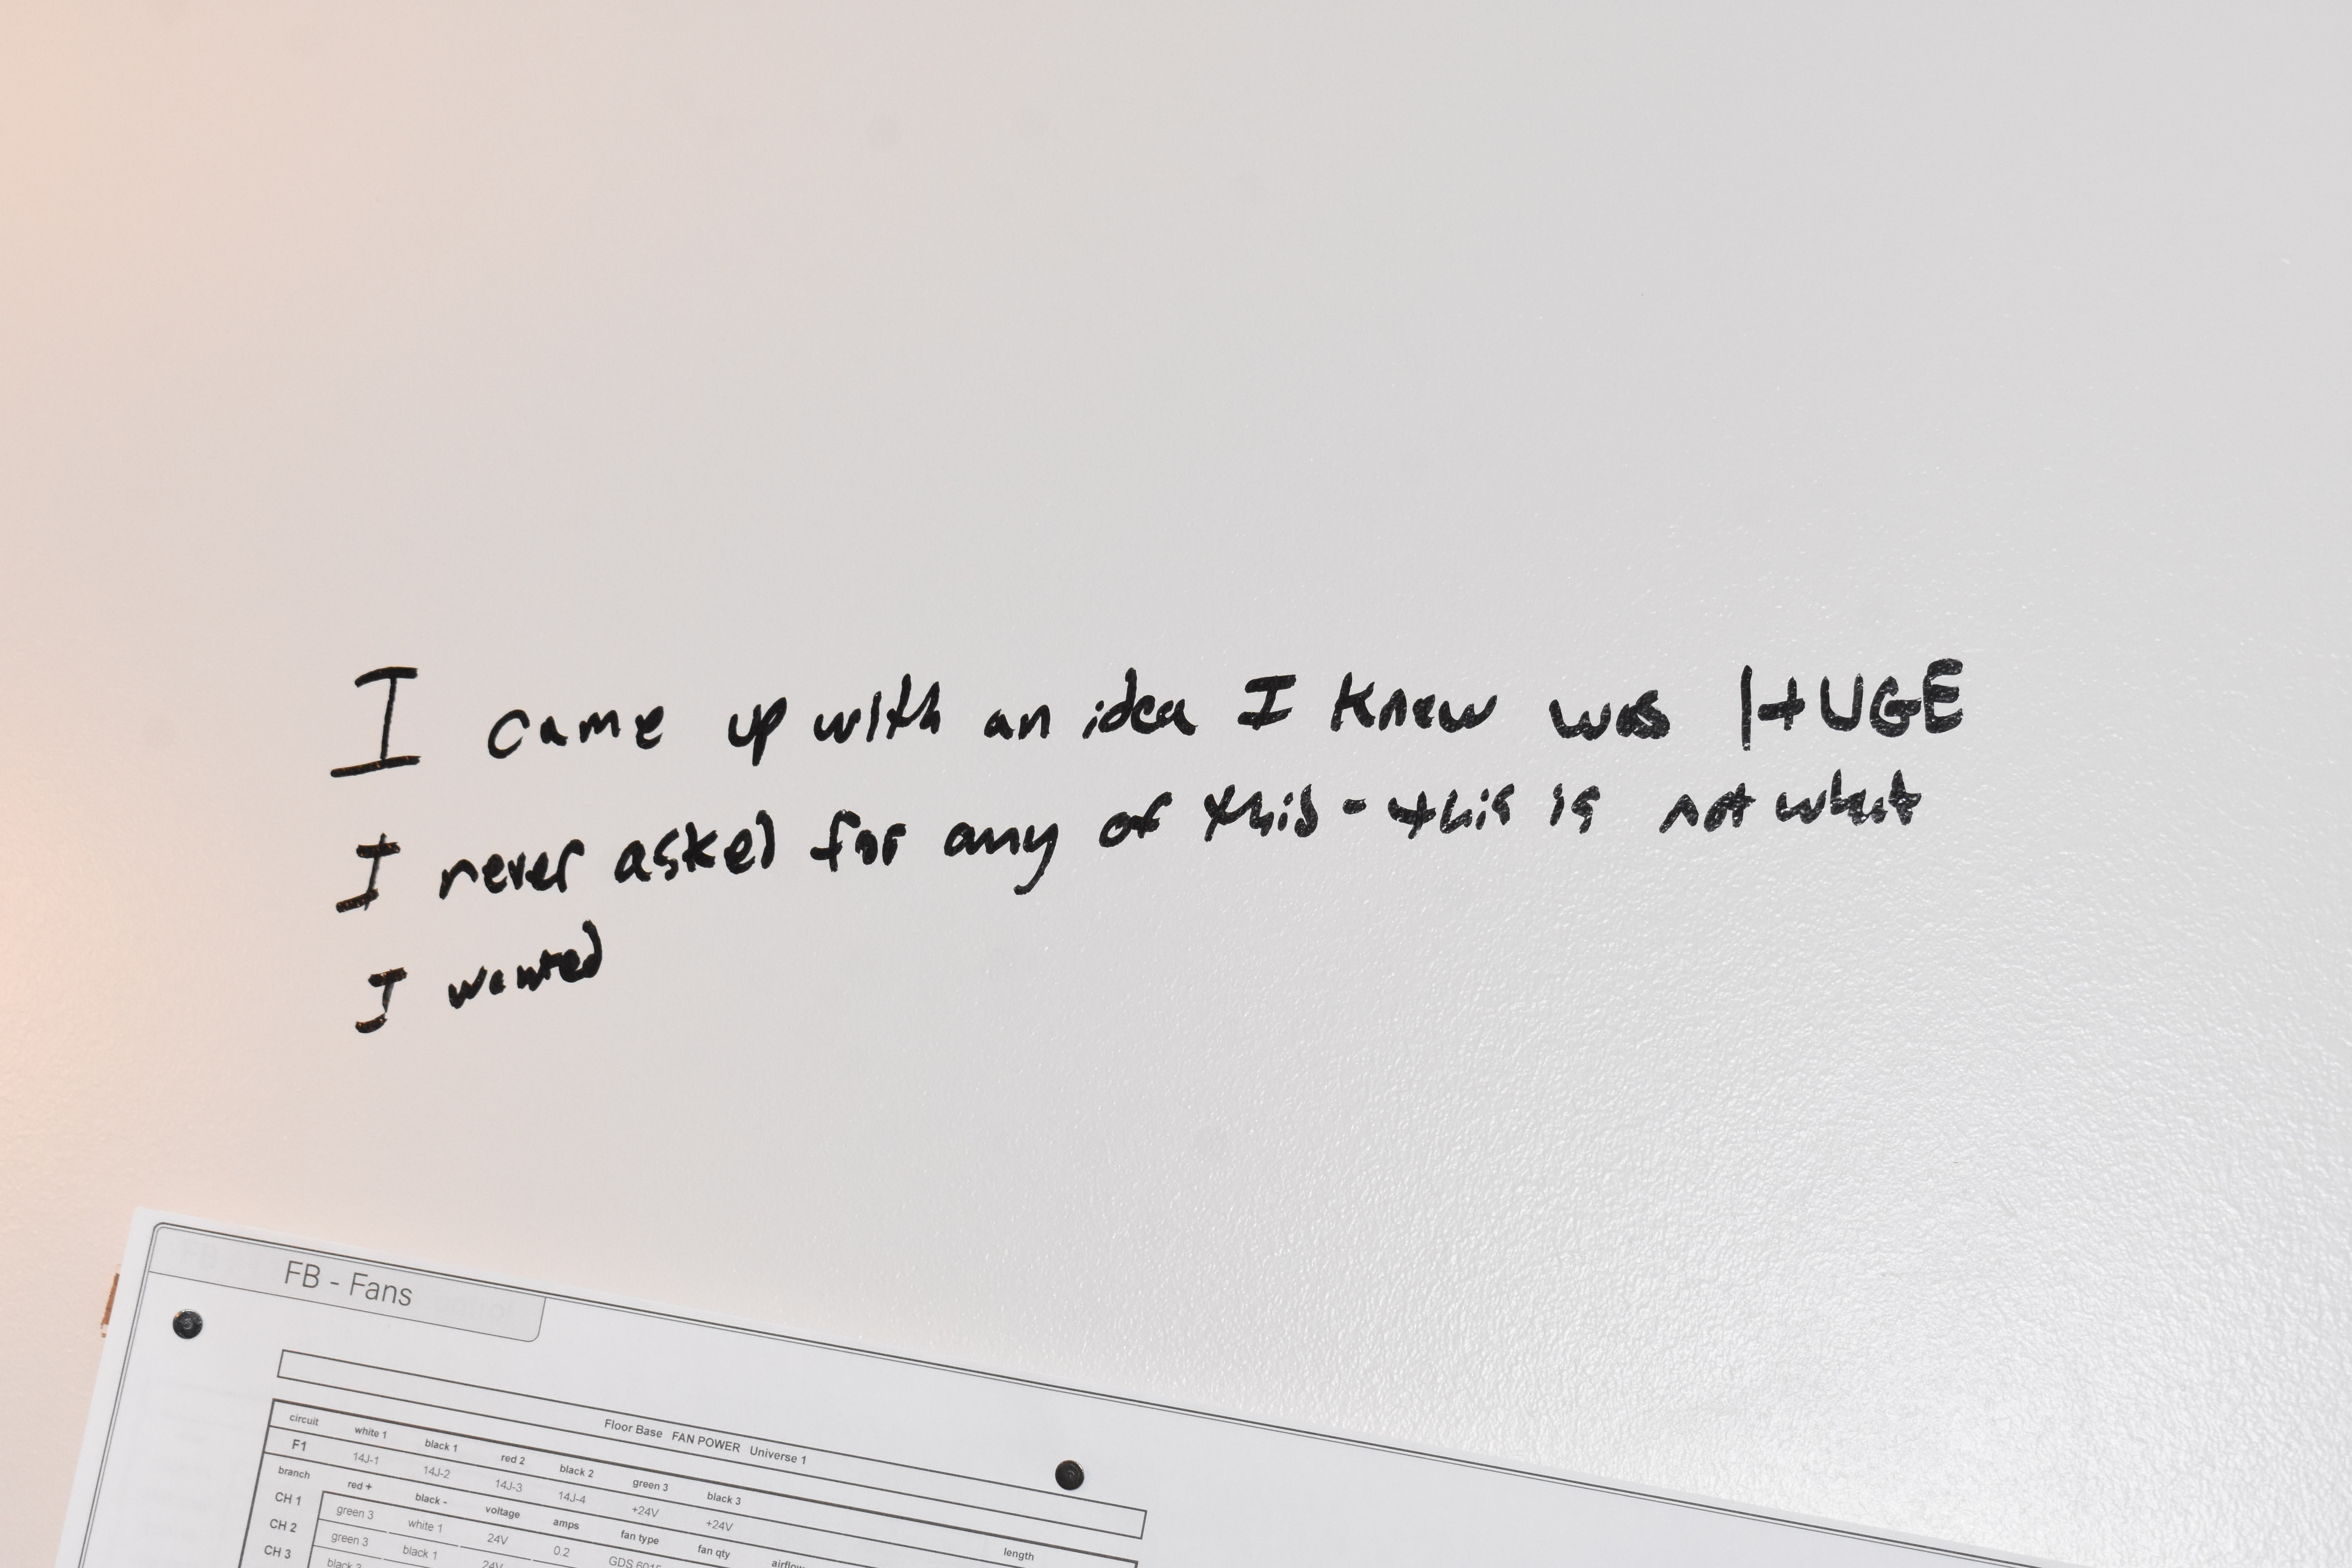 I came up with an idea I knew was HUGE
I never asked for any of this - this is not what
I wanted
FB - Fans
Floor Base FAN POWER Universe 1
circuit white 1 black 1 red 2 black 2 green 3 black 3
F1 14J-1 14J-2 14J-3 14J-4 +24V +24V
branch red + black - voltage amps fan type fan qty airflow length
CH 1 green 3 white 1 24V 0.2 GDS 6015
CH 2 green 3 black 1 24V
CH 3 black 3